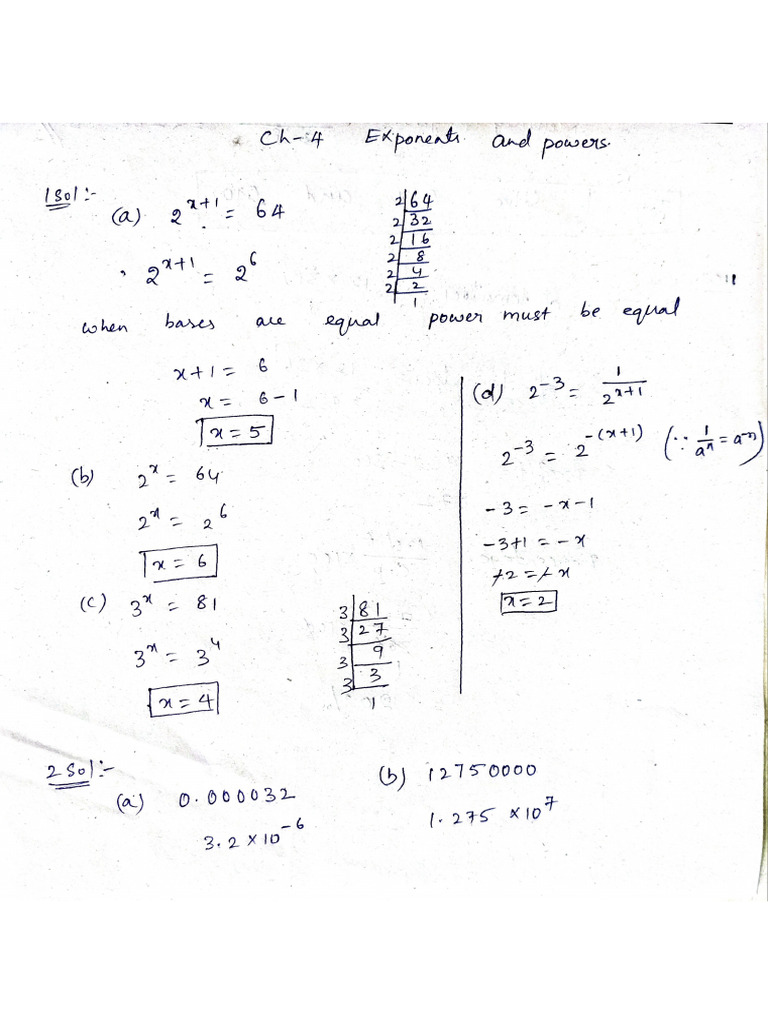 Ch-4 Exponents and powers.
1 Sol:-
(a) 2^{x+1} = 64
2^{x+1} = 2^6
2 | 64
2 | 32
2 | 16
2 | 8
2 | 4
2 | 2
1
when bases are equal power must be equal
x+1 = 6
x = 6-1
x = 5
(b) 2^x = 64
2^x = 2^6
x = 6
(c) 3^x = 81
3^x = 3^4
x = 4
3 | 81
3 | 27
3 | 9
3 | 3
1
(d) 2^{-3} = 1/2^{x+1}
2^{-3} = 2^{-(x+1)} (∵ 1/a^n = a^{-n})
-3 = -x-1
-3+1 = -x
-2 = -x
x = 2
2 Sol:-
(a) 0.000032
3.2 × 10^{-6}
(b) 12750000
1.275 × 10^7